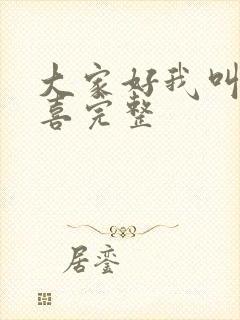 大家好我叫
喜完整
居銮